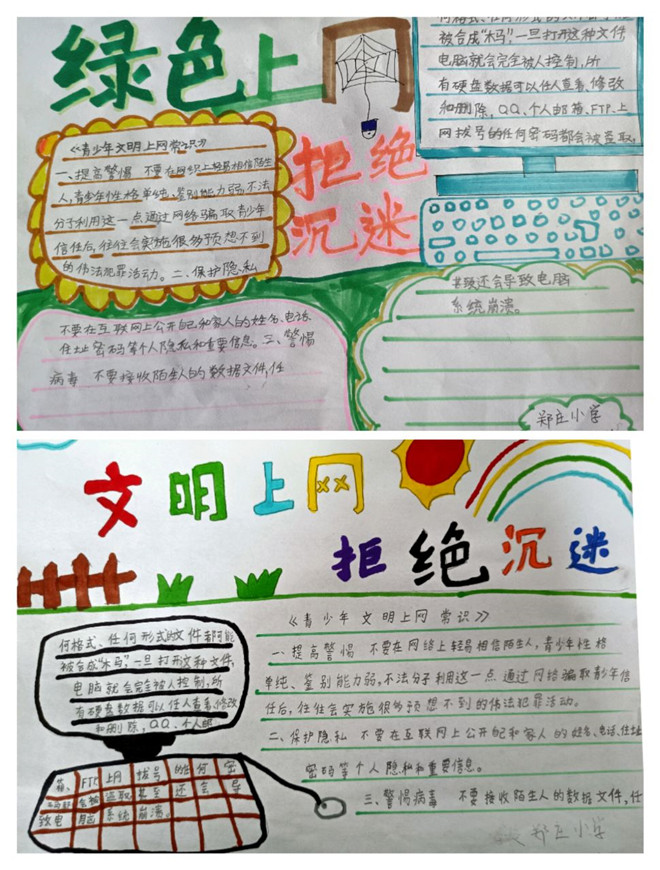 绿色上网
拒绝
沉迷
《青少年文明上网常识》
一、提高警惕 不要在网络上轻易相信陌生
人,青少年性格单纯、鉴别能力弱,不法
分子利用这一点通过网络骗取青少年
信任后,往往会实施很多预想不到
的伪法犯罪活动。二、保护隐私
被合成“木马”,一旦打开这种文件,
电脑就会完全被人控制,所
有硬盘数据可以任人查看、修改
和删除,QQ、个人邮箱、FTP、上
网拨号的任何密码都会被盗取,
不要在互联网上公开自己和家人的姓名、电话、
住址密码等个人隐私和重要信息。三、警惕
病毒 不要接收陌生人的数据文件,任
甚至还会导致电脑
系统崩溃。
郑庄小学
文明上网
拒绝沉迷
何格式、任何形式的文件都可能
被合成“木马”,一旦打开这种文件,
电脑就会完全被人控制,所
有硬盘数据可以任人查看、修改
和删除,QQ、个人邮
箱、FTP、上网拨号的任何密
码都会被盗取甚至还会导
致电脑系统崩溃。
《青少年文明上网常识》
一、提高警惕 不要在网络上轻易相信陌生人,青少年性格
单纯、鉴别能力弱,不法分子利用这一点通过网络骗取青少年信
任后,往往会实施很多预想不到的伪法犯罪活动。
二、保护隐私 不要在互联网上公开自己和家人的姓名、电话、住址
密码等个人隐私和重要信息。
三、警惕病毒 不要接收陌生人的数据文件,任
郑庄小学